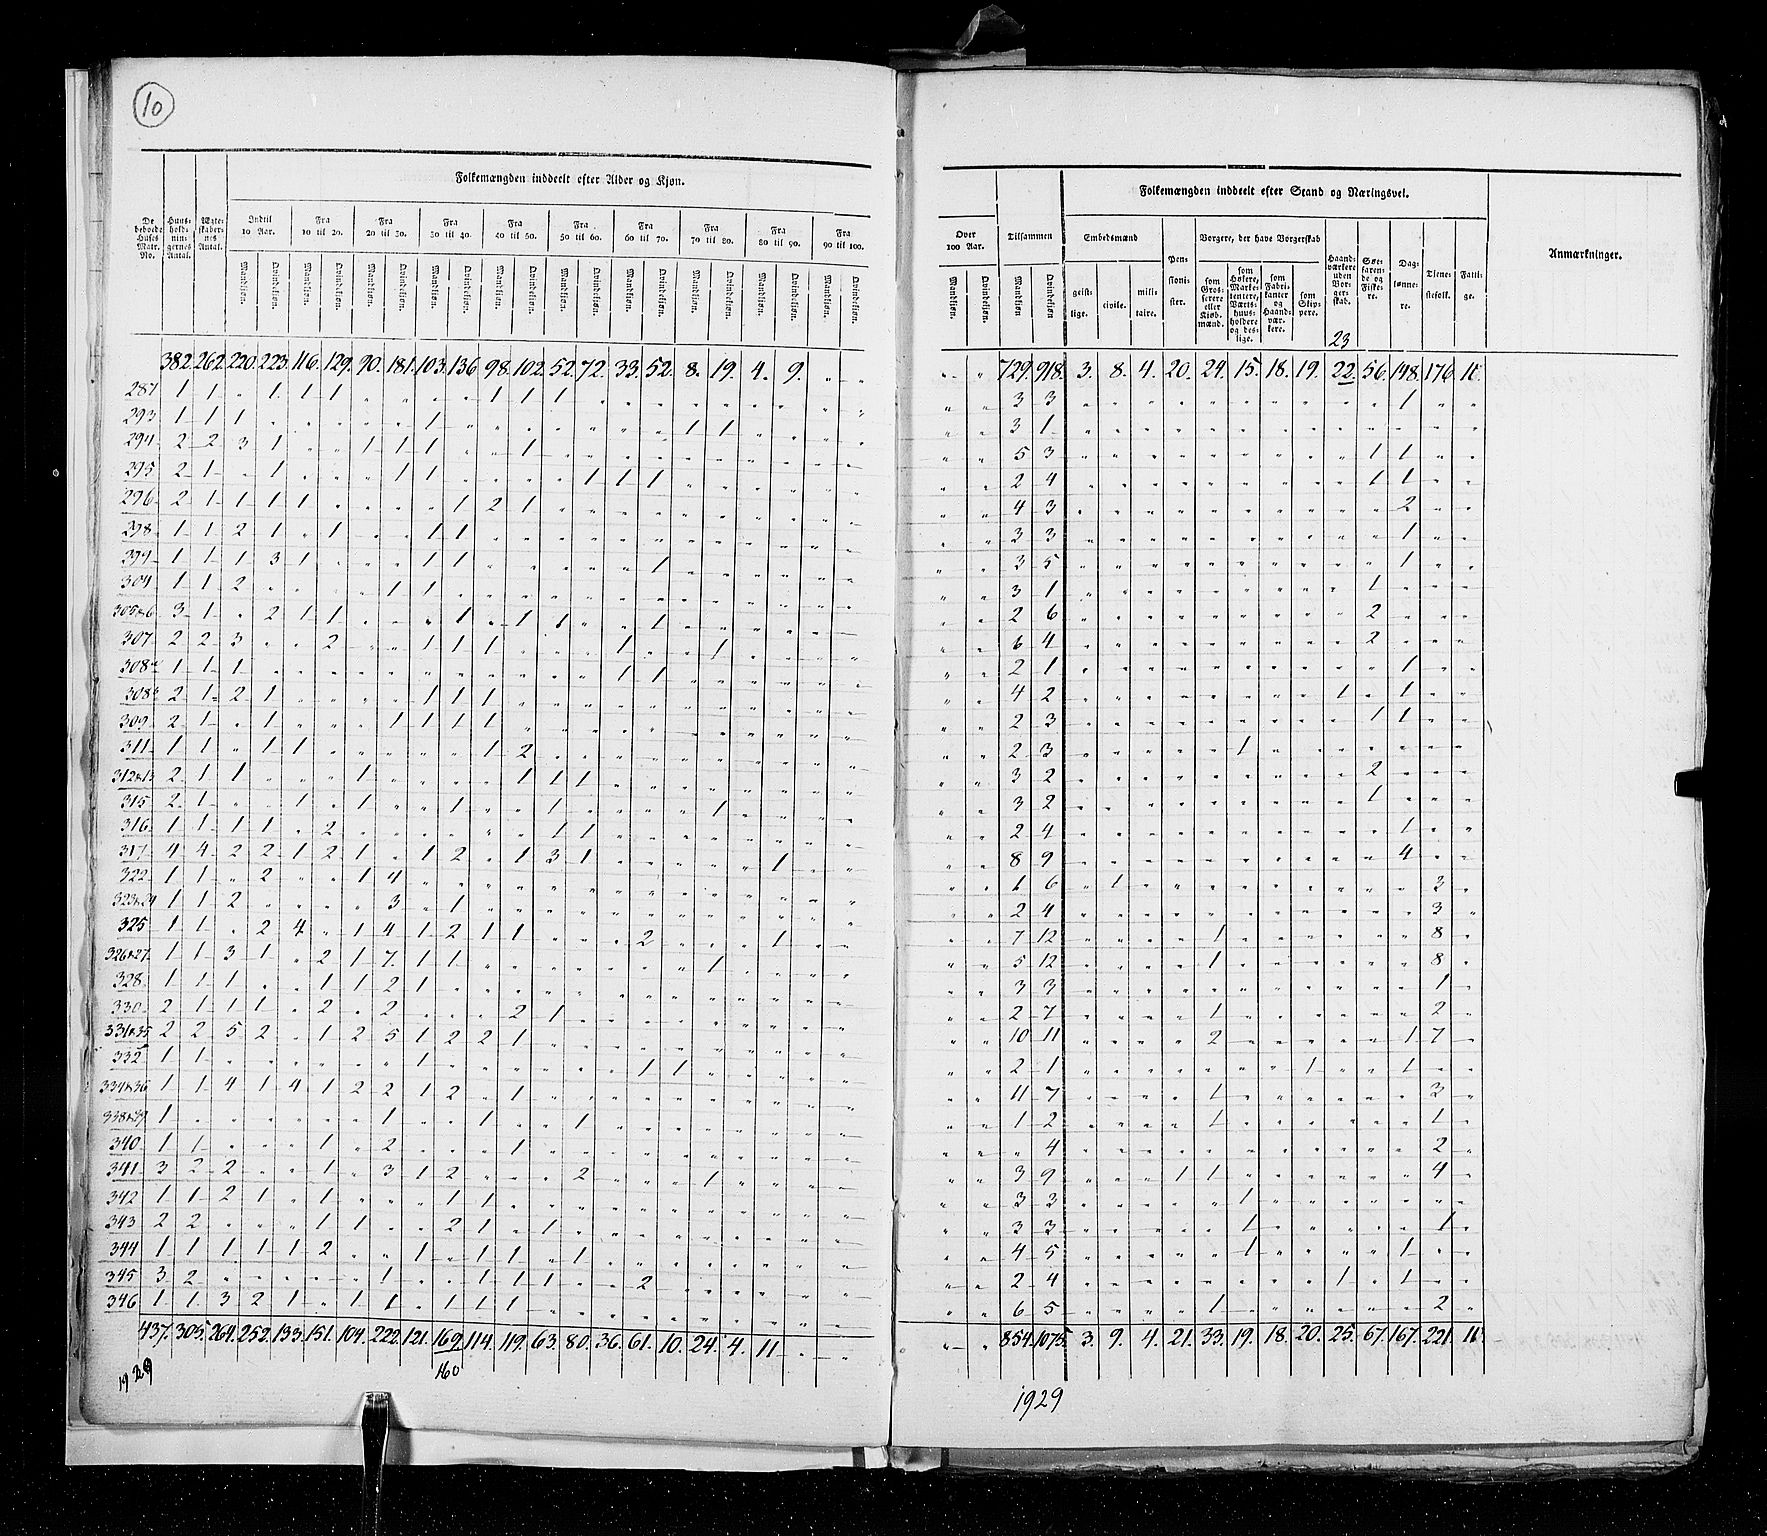 10
Folkemængden inddeelt efter Alder og Kjøn.
De beboede Huses Matr. No. Huus- hold- nin- gernes Antal. Ægte- skaber- nes Antal. Indtil 10 Aar. Fra 10 til 20. Fra 20 til 30. Fra 30 til 40. Fra 40 til 50. Fra 50 til 60. Fra 60 til 70. Fra 70 til 80. Fra 80 til 90. Fra 90 til 100.
Mandkjøn. Qvindekjøn. Mandkjøn. Qvindekjøn. Mandkjøn. Qvindekjøn. Mandkjøn. Qvindekjøn. Mandkjøn. Qvindekjøn. Mandkjøn. Qvindekjøn. Mandkjøn. Qvindekjøn. Mandkjøn. Qvindekjøn. Mandkjøn. Qvindekjøn. Mandkjøn. Qvindekjøn.
382. 262. 220. 223. 116. 129. 90. 181. 103. 136. 98. 102. 52. 72. 33. 52. 8. 19. 4. 9. „ „
287 1 1 „ 1 1 1 „ „ „ „ 1 1 1 „ „ „ „ „ „ „ „ „
293 1 1 1 „ „ „ „ „ 1 „ „ „ „ „ „ „ 1 1 „ „ „ „
294 2 2 3 1 „ „ 1 1 1 „ „ 1 „ „ „ „ „ „ „ „ „ „
295 2 1 „ 1 „ „ „ 1 1 „ „ „ „ 1 1 1 „ „ „ „ „ „
296 2 1 1 1 1 „ „ „ „ 1 2 1 „ „ „ „ „ „ „ „ „ „
298 1 1 2 1 „ 1 „ „ 1 1 „ „ „ „ „ „ „ „ „ „ „ „
1 1 1 3 1 „ „ „ 1 1 „ „ „ „ „ 1 „ „ „ „ „ „
304 1 1 2 „ „ „ „ 1 1 „ „ „ „ „ „ „ „ „ „ „ „ „
305&6 3 1 „ 2 1 1 „ „ „ 1 „ 1 1 „ „ 1 „ „ „ „ „ „
307 2 2 3 „ „ 2 „ „ 1 1 1 „ „ „ 1 „ „ 1 „ „ „ „
308a 1 1 1 „ „ „ „ „ „ „ „ „ „ „ 1 1 „ „ „ „ „ „
308b 2 1 2 1 „ „ „ „ 1 1 1 „ „ „ „ „ „ „ „ „ „ „
309 2 1 „ 1 „ „ „ 1 1 1 1 „ „ „ „ „ „ „ „ „ „ „
311 1 1 „ 1 1 „ „ „ „ „ 1 2 „ „ „ „ „ „ „ „ „ „
312&13 2 1 1 „ „ „ 1 „ „ „ „ 1 1 1 „ „ „ „ „ „ „ „
315 2 1 „ „ 1 „ 1 „ „ 1 „ „ 1 „ „ „ „ 1 „ „ „ „
316 1 1 1 1 „ 2 „ „ „ „ „ „ 1 1 „ „ „ „ „ „ „ „
317 4 4 2 2 1 2 1 „ 1 2 „ 1 3 1 „ „ „ „ „ 1 „ „
322 1 1 „ 2 „ „ 1 4 „ „ „ „ „ „ „ „ „ „ „ „ „ „
323&24 1 1 2 „ „ „ „ 3 „ 1 „ „ „ „ „ „ „ „ „ „ „ „
325 1 1 „ 2 4 „ 1 4 1 2 1 1 „ „ „ 2 „ „ „ 1 „ „
326&27 1 1 3 1 „ 2 1 7 1 1 „ „ „ „ „ „ „ 1 „ „ „ „
328 1 1 1 „ „ 1 1 2 1 „ „ „ „ „ „ „ „ „ „ „ „ „
330 2 1 1 1 „ 2 „ 2 „ „ „ 2 1 „ „ „ „ „ „ „ „ „
331&35 2 2 5 2 „ 1 2 5 1 2 2 1 „ „ „ „ „ „ „ „ „ „
332 1 1 „ „ „ „ „ „ 1 „ „ „ „ „ „ 1 1 „ „ „ „ „
334&36 1 1 4 1 4 1 2 2 1 2 „ 1 „ „ „ „ „ „ „ „ „ „
338&39 1 „ „ „ „ „ „ 1 „ „ 1 „ „ 1 „ „ „ „ „ „ „ „
340 1 1 „ „ „ 1 „ 2 „ „ „ 1 „ „ „ „ „ „ „ „ „ „
341 3 2 2 „ „ 1 „ 3 1 2 „ „ „ 2 „ „ „ 1 „ „ „ „
342 1 1 2 1 „ 1 „ „ „ 1 1 „ „ „ „ „ „ „ „ „ „ „
343 2 2 „ „ „ 1 1 „ „ 2 1 „ 1 „ „ „ „ „ „ „ „ „
344 1 1 1 1 1 2 „ „ 1 „ 1 1 „ 1 „ „ „ „ „ „ „ „
345 3 2 „ „ „ „ „ 1 „ „ 1 1 1 „ „ 2 „ „ „ „ „ „
346 1 1 3 2 1 „ 1 1 „ 1 1 1 „ „ „ „ „ „ „ „ „ „
437. 305. 264. 252. 133. 151. 104. 222. 121. 169. 114. 119. 63. 80. 36. 61. 10. 24. 4. 11 „ „
160
Over 100 Aar. Tilsammen Folkemængden inddeelt efter Stand og Næringsvei. Anmærkninger.
Mandkjøn. Qvindekjøn. Mandkjøn Qvindekjøn.
Embedsmænd geist- lige. civile. mili- taire. Pen- sioni- ster. Borgere, der have Borgerskab som Gros- serere eller Kjøb- mænd. som Høkere, Marke- tentere, Værts- huus- holdere og des- lige. som Fabri- kanter og Haand- vær- kere. som Skip- pere. Haand- værkere uden Bor- ger- skab. Søe- faren- de og Fiske- re. Dag- lønne- re. Tiene- stefolk. Fatti- ge.
23
„ „ 729. 918. 3. 8. 4. 20. 24. 15. 18. 19. 22. 56. 148. 176
„ „ 3 3 „ „ „ „ „ „ „ „ „ „ 1 „ „
„ „ 3 1 „ „ „ „ „ „ „ „ „ „ „ „ „
„ „ 5 3 „ „ „ „ „ „ „ „ „ 1 1 „ „
„ „ 2 4 „ „ „ „ „ „ „ „ „ 1 1 „ „
„ „ 4 3 „ „ „ „ „ „ „ „ „ „ 2 „ „
„ „ 3 3 „ „ „ „ „ „ „ „ „ „ 1 „ „
„ „ 3 5 „ „ „ „ „ „ „ „ „ „ 1 „ „
„ „ 3 1 „ „ „ „ „ „ „ „ „ 1 „ „ „
„ „ 2 6 „ „ „ „ „ „ „ „ „ 2 „ „ „
„ „ 6 4 „ „ „ „ „ „ „ „ „ 2 „ „ „
„ „ 2 1 „ „ „ „ „ „ „ „ „ „ 1 „ „
„ „ 4 2 „ „ „ „ „ „ „ „ 1 „ 1 „ „
„ „ 2 3 „ „ „ „ „ „ „ „ „ 1 1 „ „
„ „ 2 3 „ „ „ „ „ 1 „ „ „ „ „ „ „
„ „ 3 2 „ „ „ „ „ „ „ „ „ 2 „ „ „
„ „ 3 2 „ „ „ „ „ „ „ „ „ 1 „ „ „
„ „ 2 4 „ „ „ „ „ „ „ „ „ „ 1 „ „
„ „ 8 9 „ „ „ „ „ „ „ „ „ „ 4 „ „
„ „ 1 6 „ 1 „ „ „ „ „ „ „ „ „ 3 „
„ „ 2 4 „ „ „ „ „ „ „ „ „ „ „ 3 „
„ „ 7 12 „ „ „ „ 1 „ „ „ „ „ „ 8 „
„ „ 5 12 „ „ „ „ 1 „ „ „ „ „ „ 8 „
„ „ 3 3 „ „ „ „ „ „ „ „ „ „ „ 1 „
„ „ 2 7 „ „ „ „ 1 „ „ „ „ „ „ 2 „
„ „ 10 11 „ „ „ „ 2 „ „ „ „ „ 1 7 „
„ „ 2 1 „ „ „ „ „ „ „ 1 „ „ 1 „ „
„ „ 11 7 „ „ „ „ 1 „ „ „ „ „ „ 3 „
„ „ 1 2 „ „ „ „ 1 „ „ „ „ „ „ 1 „
„ „ „ 4 „ „ „ „ „ „ „ „ „ „ „ 2 „
„ „ 3 9 „ „ „ 1 1 „ „ „ „ „ „ 4 „
„ „ 3 3 „ „ „ „ „ 1 „ „ „ „ „ „ „
„ „ 3 3 „ „ „ „ „ 1 „ „ „ „ „ 1 „
„ „ 4 5 „ „ „ „ „ 1 „ „ „ „ 1 „ „
„ „ 2 4 „ „ „ „ „ „ „ „ 1 „ 1 „ „
„ „ 6 5 „ „ „ „ 1 „ „ „ „ „ „ 2 „
„ „ 854. 1075. 3. 9. 4. 21. 33. 19. 18. 20. 25. 67. 167. 221
1929